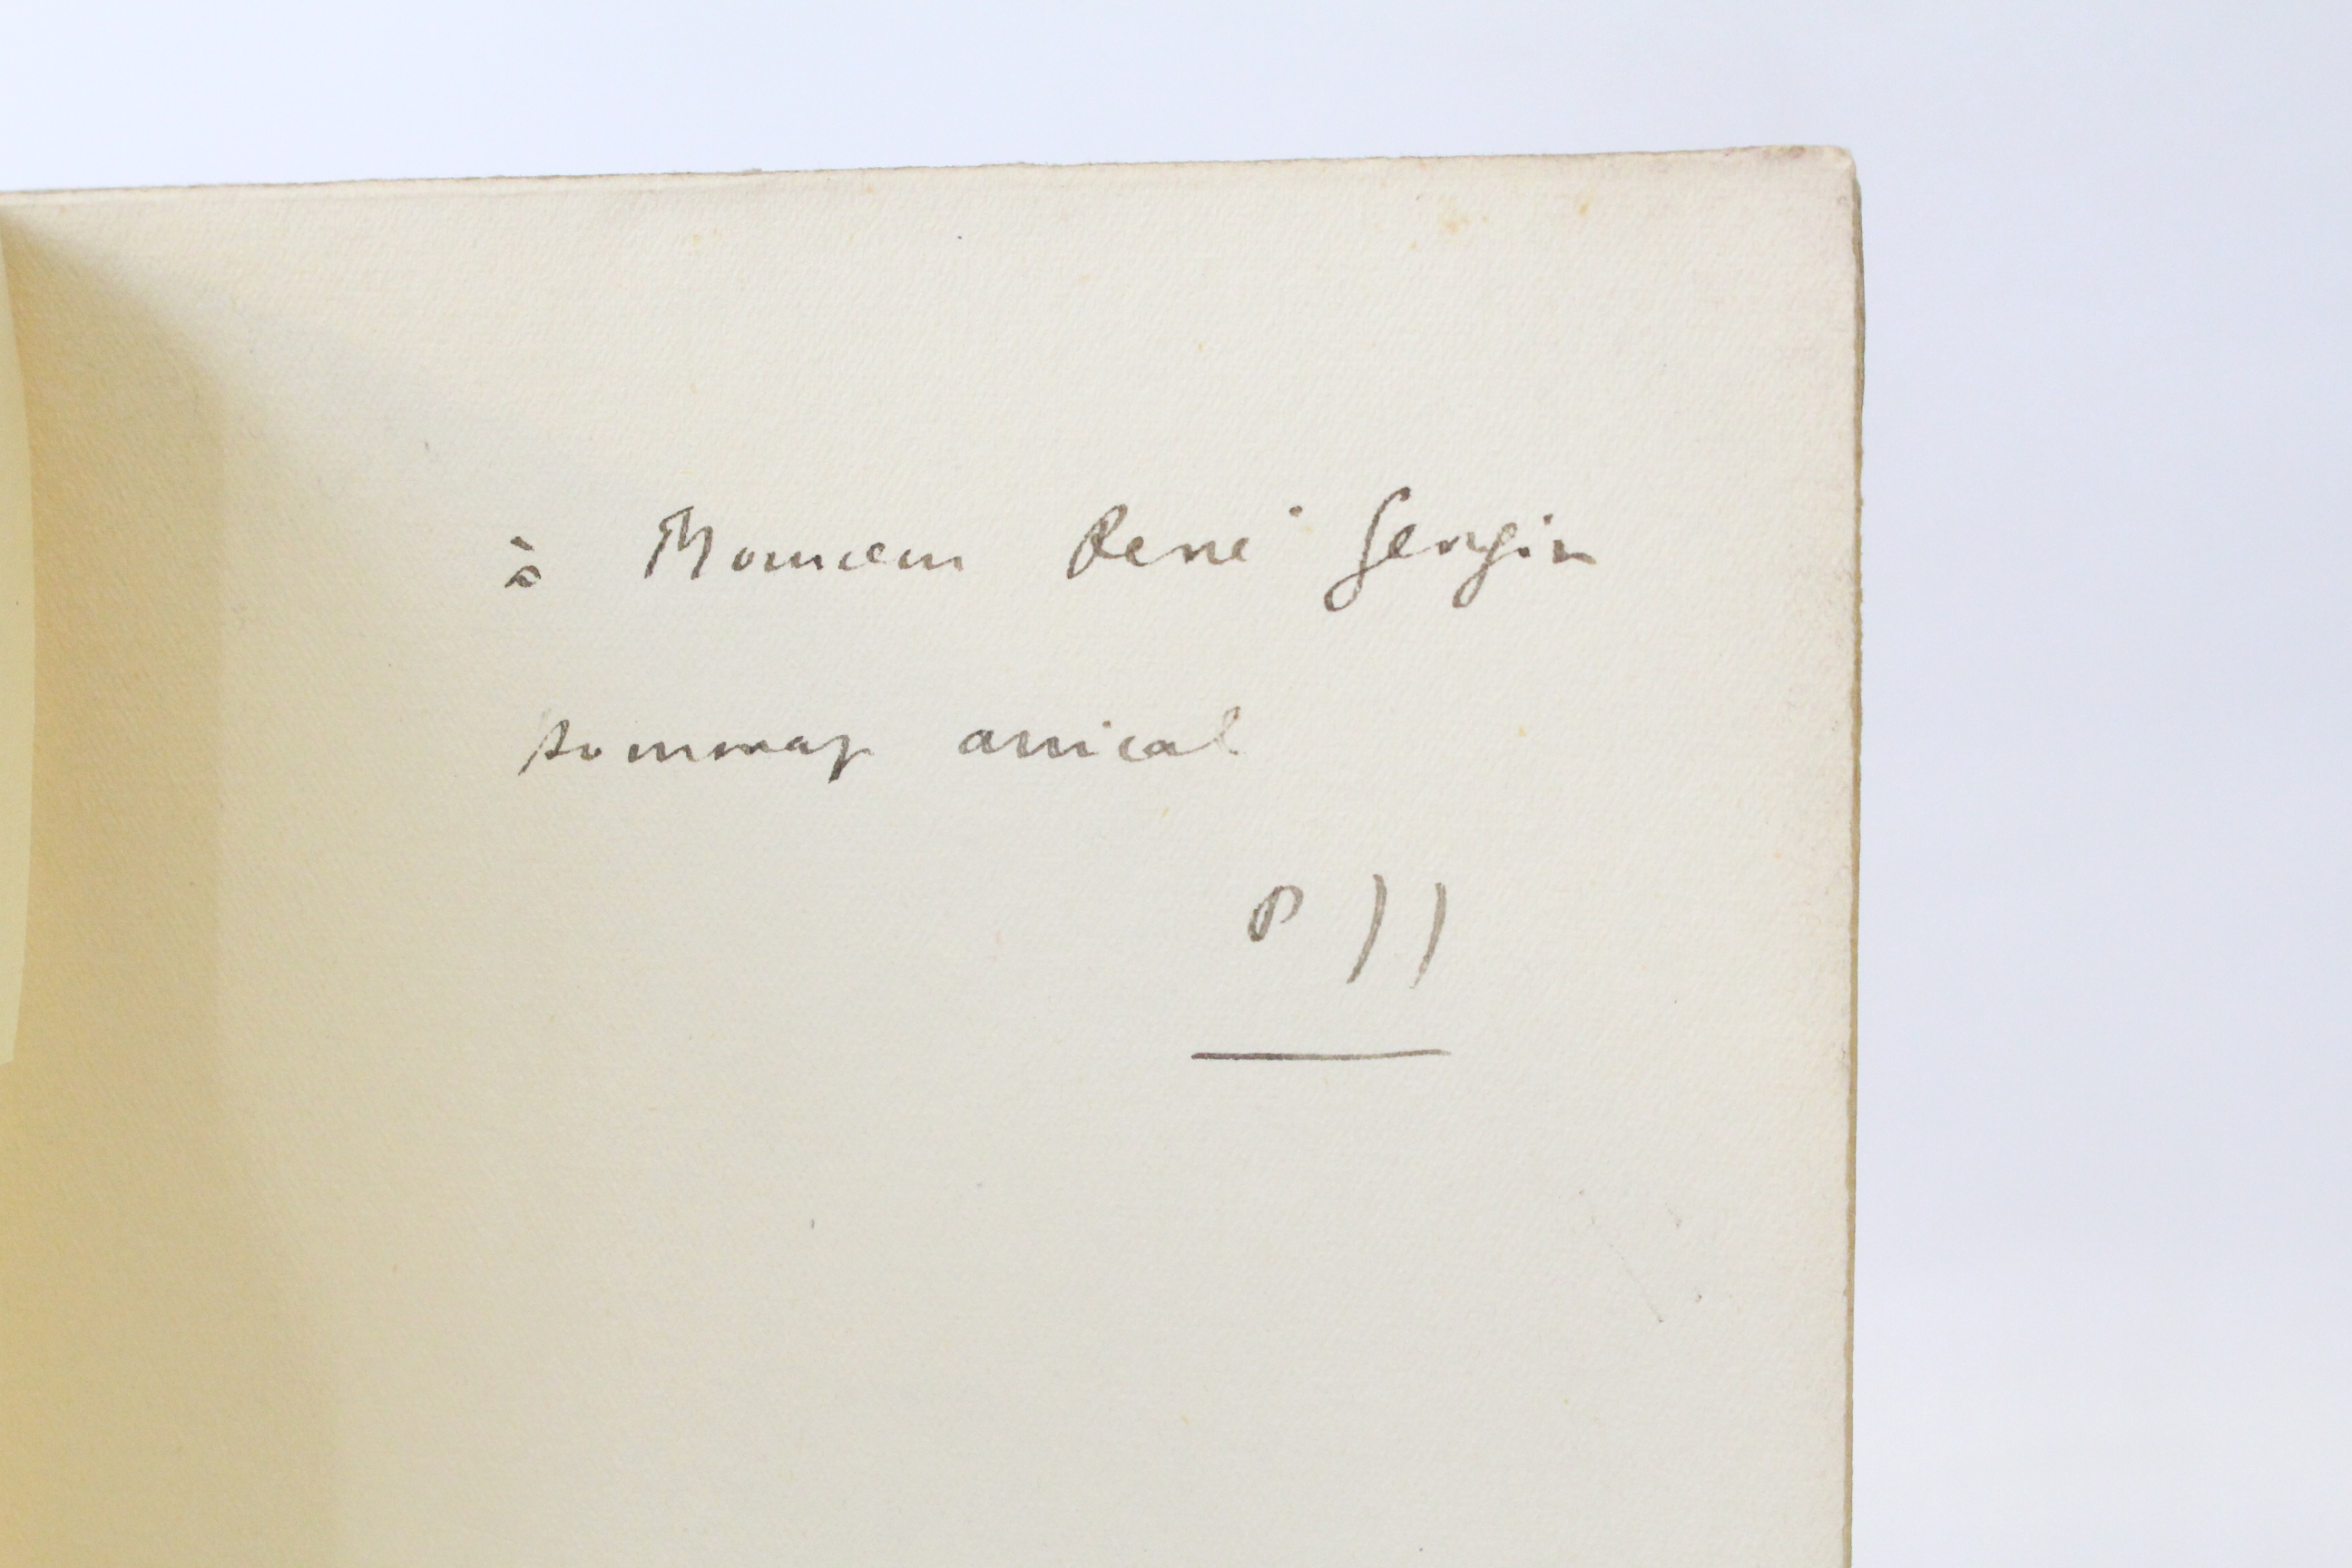 à Monsieur René Gengin
hommage amical
PJJ